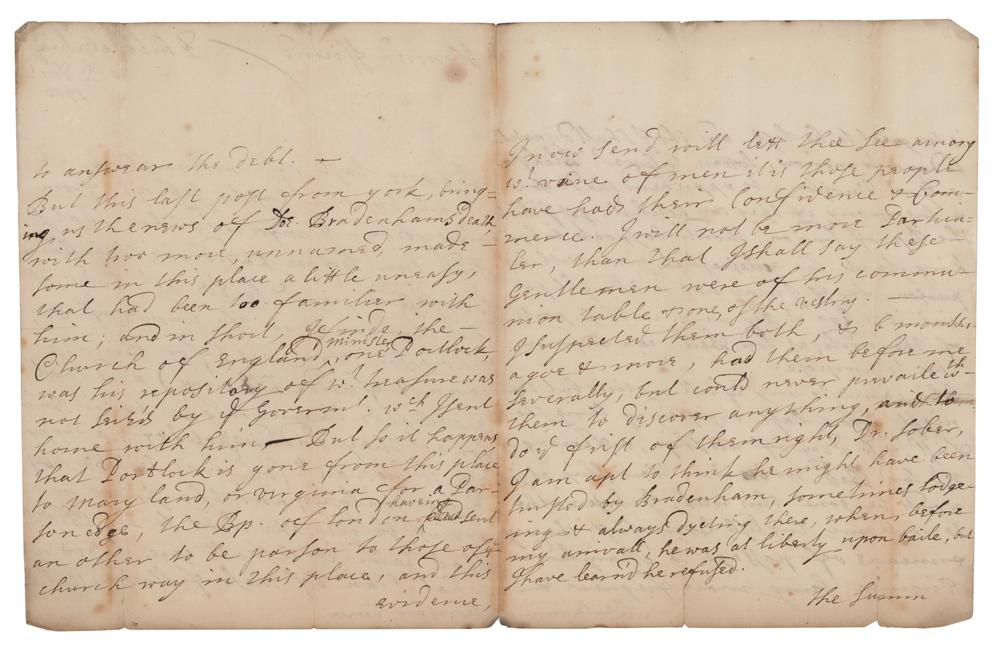 to answear the debt. —
But this last post from york, bring-
ing us the news of Dr. Bradenhams death
with two more, unnamed, made
some in this place a little uneasy,
that had been too familier with
him; and in short, I finde, the
Church of England minister, one Portlock,
was his repository of wt. treasure was
not seised by ye Governmt. wch I sent
home with him — But so it happens
that Portlock is gone from this place
to mary land, or virginia for a Par-
sonedge, the Bp. of london haveing sent
an other to be parson to those of ye
church way in this place, and this
evidence,
I now send will lett thee see among
wt. raine of men it is those people
have had their Confidence & Com-
merce. I will not be more Particu-
ler, than that I shall say these
Gentlemen were of his commu-
nion table & one, of the vestry. —
I suspected them both, & 6 months
agoe & more, had them before me
severally, but could never prevaile wth
them to discover anything, and to
do ye first of them right, Dr. Sober,
I am apt to think he might have been
trusted by Bradenham, sometimes lodge-
ing & always dyeting there, when, before
my arrivall, he was at liberty upon baile, but
I have learn'd he refused.
the summ